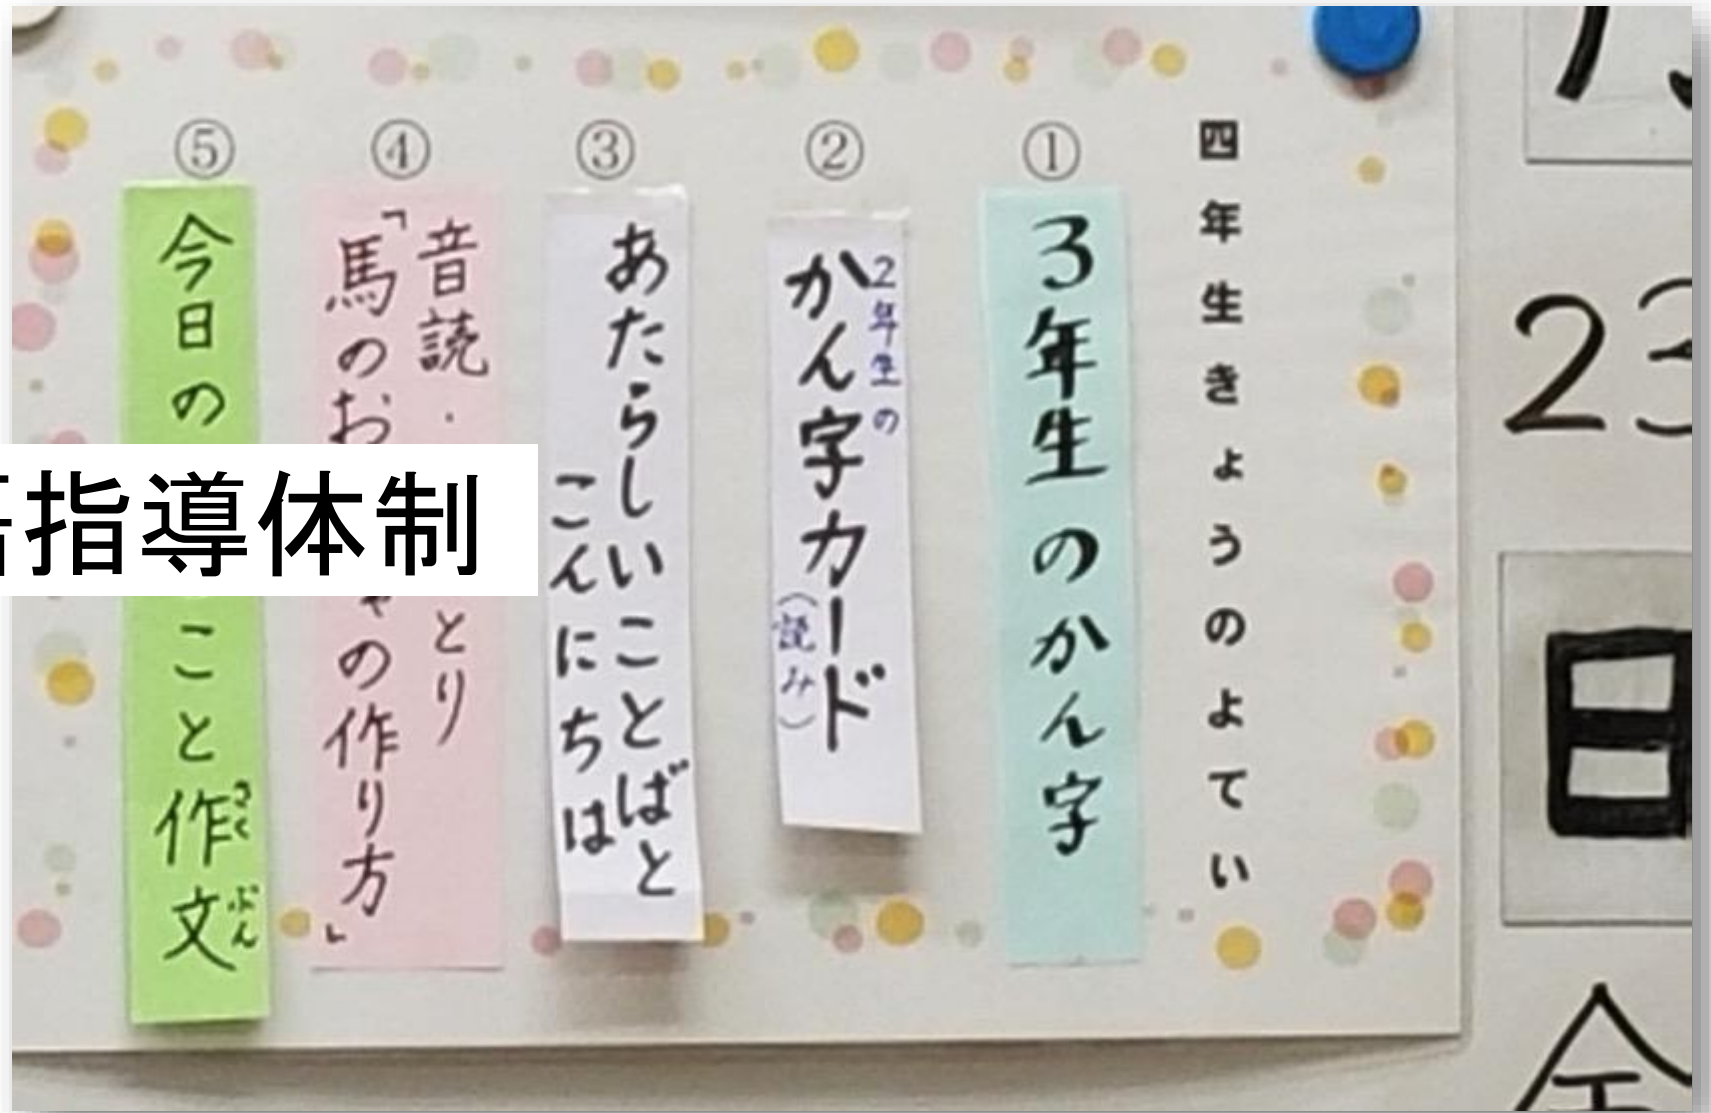 四年生きょうのよてい
①
3年生のかん字
②
2年生の
かん字カード
(読み)
③
あたらしいことばと
こんにちは
④
音読・
とり
「馬のお
の作り方」
⑤
今日の
こと作文
さく
ぶん
指導体制
23
日
金